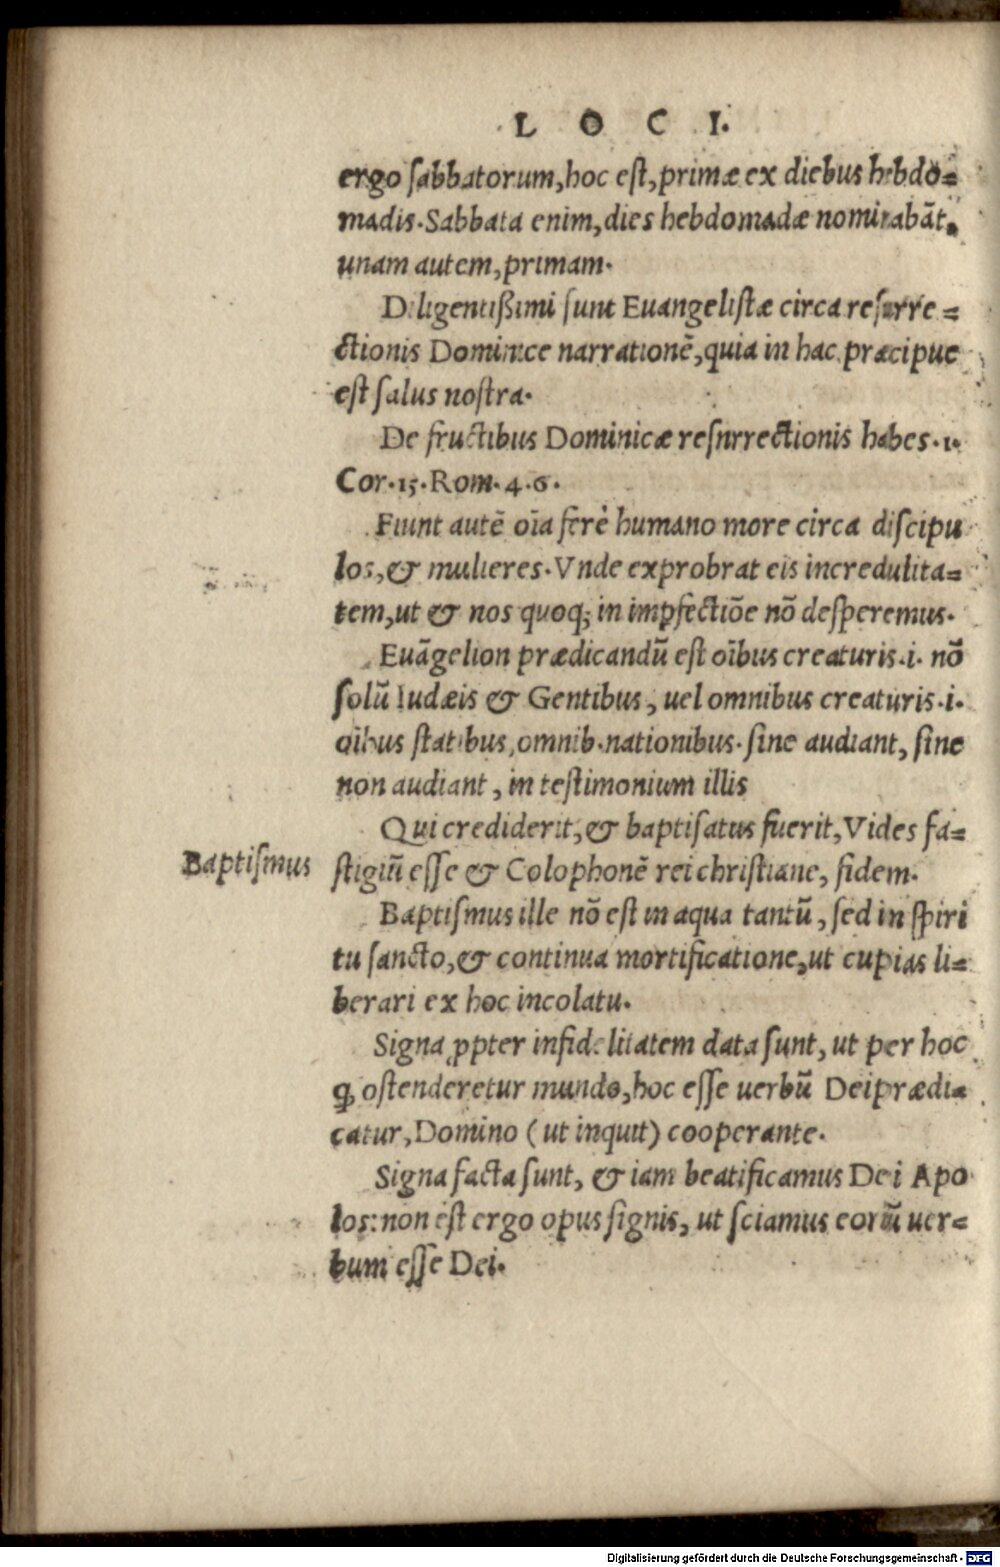 L O C I.
ergo sabbatorum, hoc est, primæ ex diebus hebdo=
madis. Sabbata enim, dies hebdomadæ nominabāt,
unam autem, primam.
Diligentißimi sunt Euangelistæ circa resurre=
ctionis Dominicæ narrationē, quia in hac præcipue
est salus nostra.
De fructibus Dominicæ resnrrectionis habes. 1.
Cor. 15. Rom. 4. 6.
Fiunt autē oīa ferè humano more circa discipu
los, & mulieres. Vnde exprobrat eis incredulita=
tem, ut & nos quoq; in impfectiōe nō desperemus.
Euāgelion prædicandū est oībus creaturis .i. nō
solū Iudæis & Gentibus, uel omnibus creaturis .i.
oībus statibus, omnib. nationibus. sine audiant, sine
non audiant, in testimonium illis
Qui crediderit, & baptisatus fuerit, Vides fa=
Baptismus
stigiū esse & Colophonē rei christiane, fidem.
Baptismus ille nō est in aqua tantū, sed in spiri
tu sancto, & continua mortificatione, ut cupias li=
berari ex hoc incolatu.
Signa ꝓpter infidelitatem data sunt, ut per hoc
ꝗ ostenderetur mundo, hoc esse uerbū Dei prædi=
catur, Domino (ut inquit) cooperante.
Signa facta sunt, & iam beatificamus Dei Apo
los: non est ergo opus signis, ut sciamus eorū uer=
bum esse Dei.
Digitalisierung gefördert durch die Deutsche Forschungsgemeinschaft - DFG